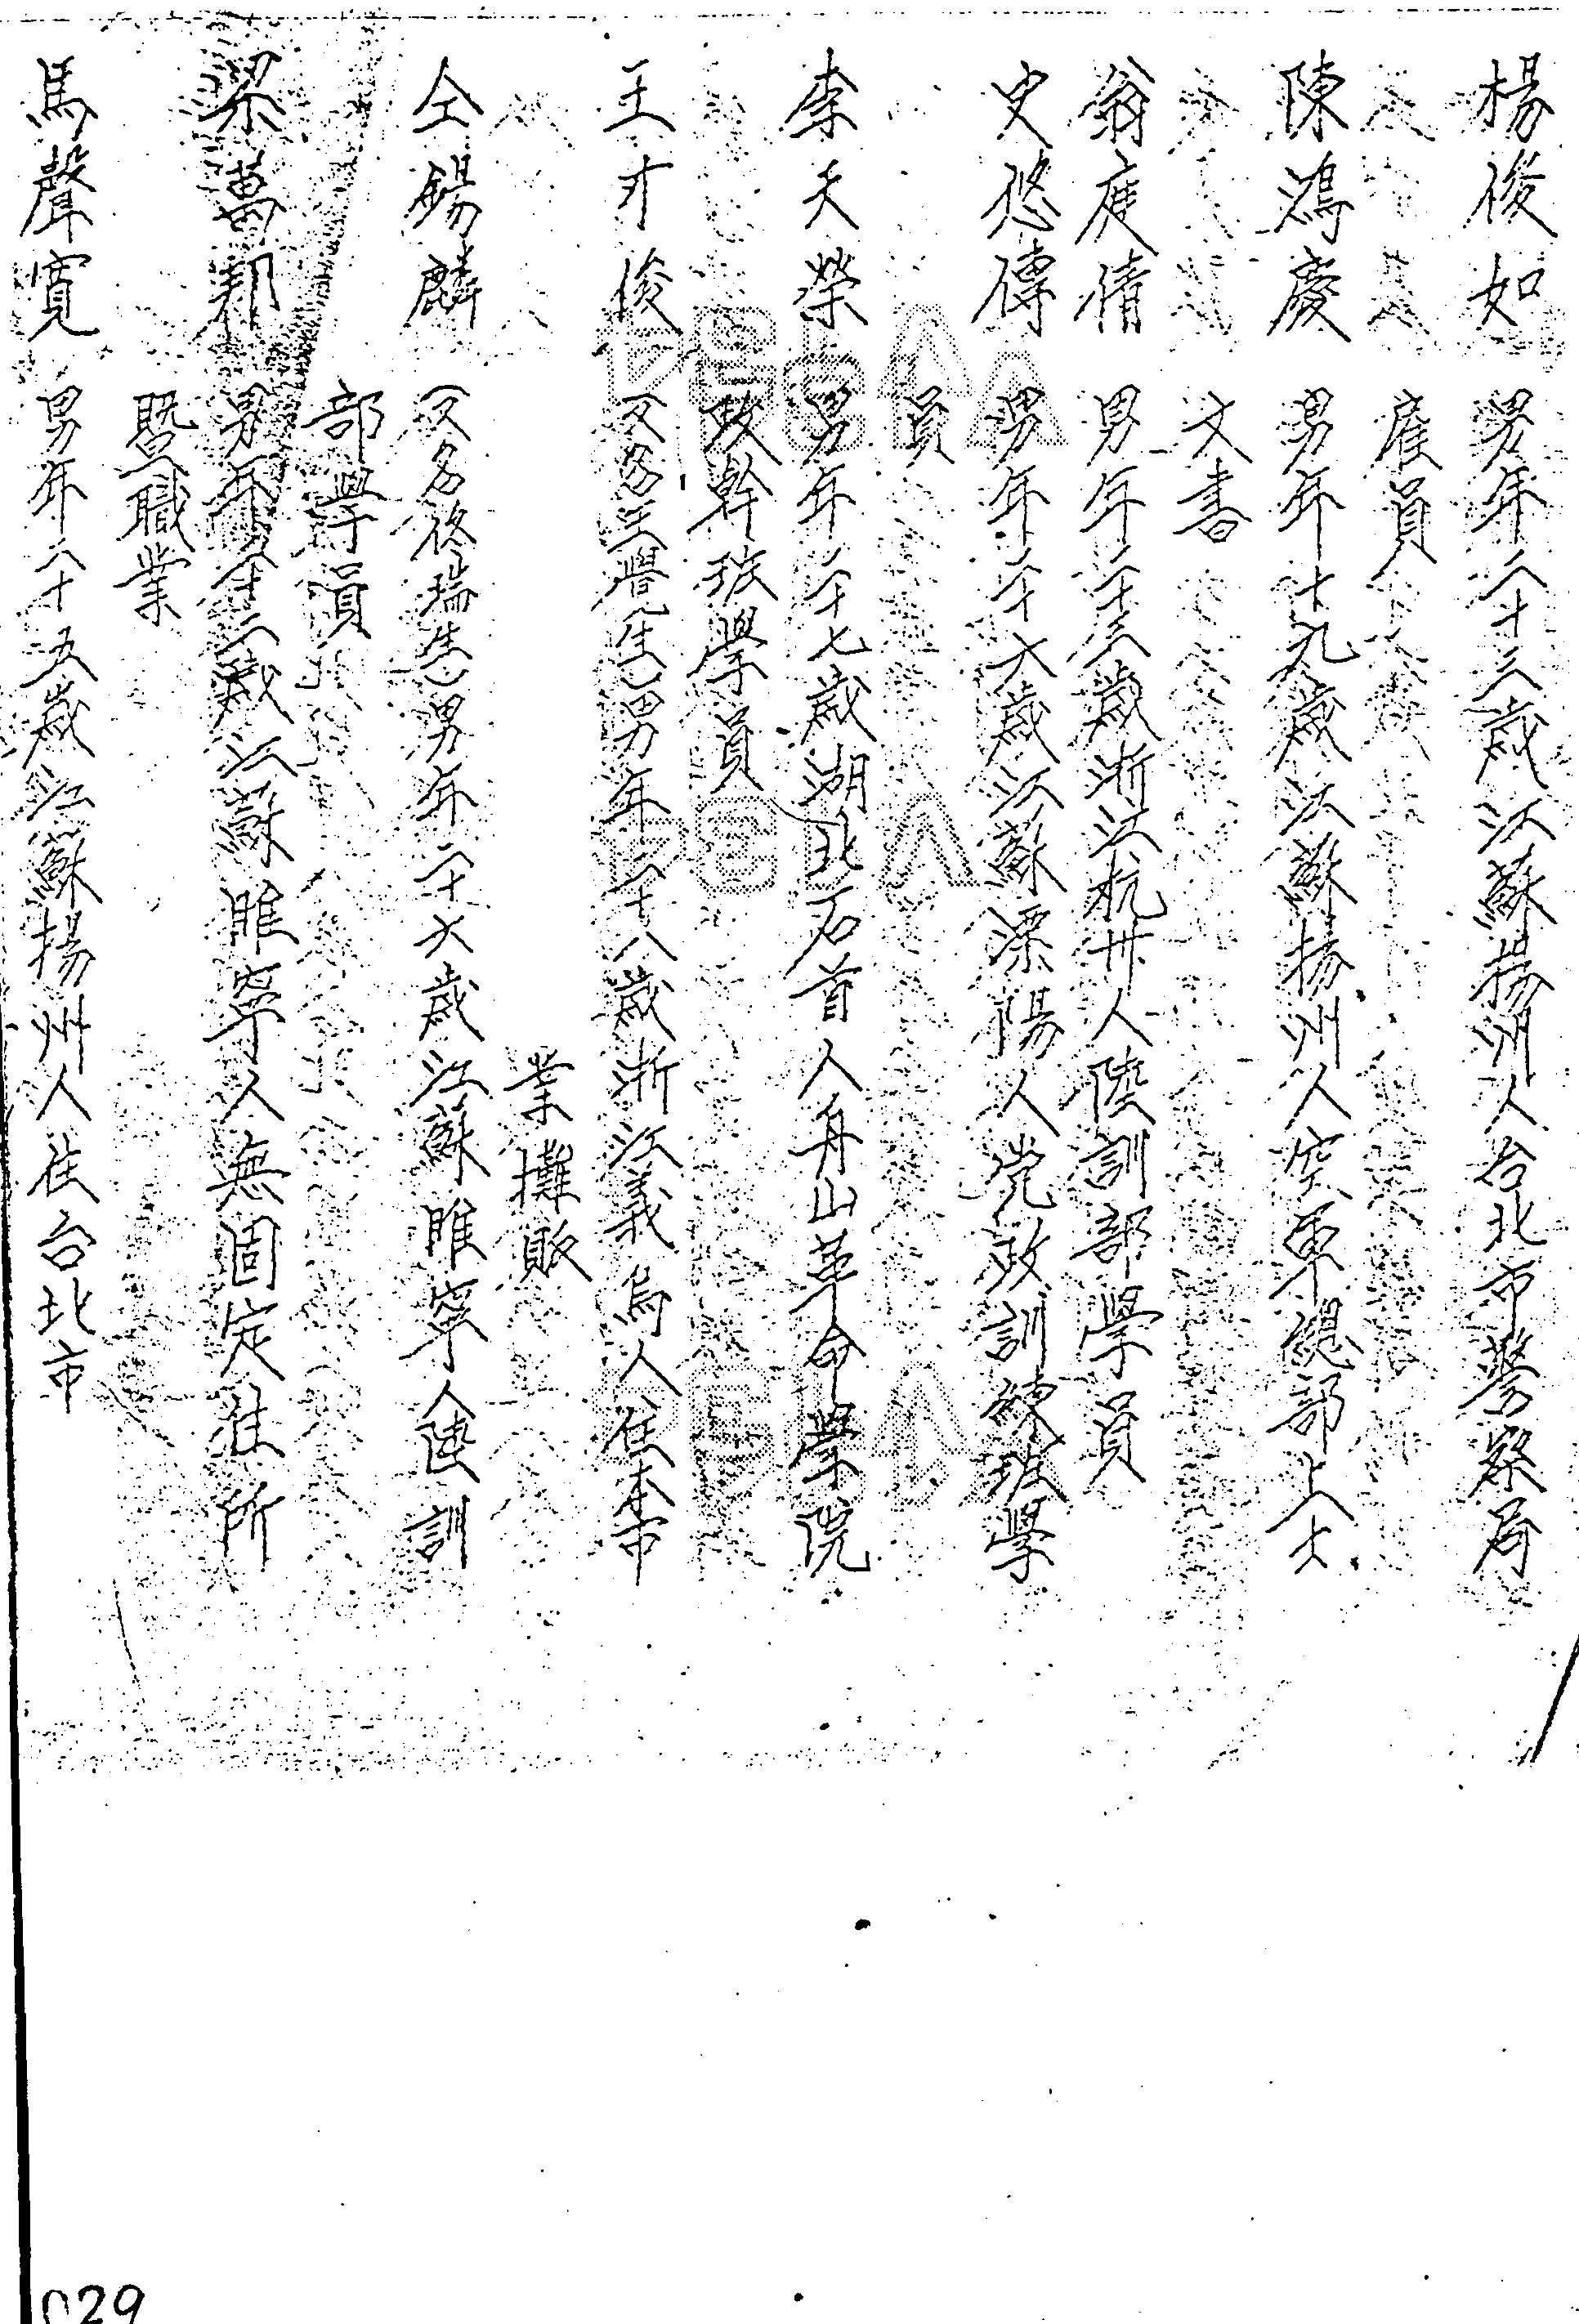 楊俊如　男年二十三歲江蘇揚州人台北市警察局
雇員
陳鴻慶　男年十九歲江蘇揚州人空軍總部上士
文書
翁庭倩　男年二十三歲浙江杭州人陸訓部學員
史悠傳　男年二十六歲江蘇溧陽人党政訓練班學
員
李天榮　男年二十七歲湖北石首人舟山革命學院
政幹班學員
王才俊　又名王譽生男年二十八歲浙江義烏人住本市
業攤販
仝錫麟　又名佟瑞生男年二十六歲江蘇睢寧人陸訓
部學員
梁萬邦　男年二十二歲江蘇睢寧人無固定住所
暨職業
馬聲寬　男年二十五歲江蘇揚州人住台北市
029